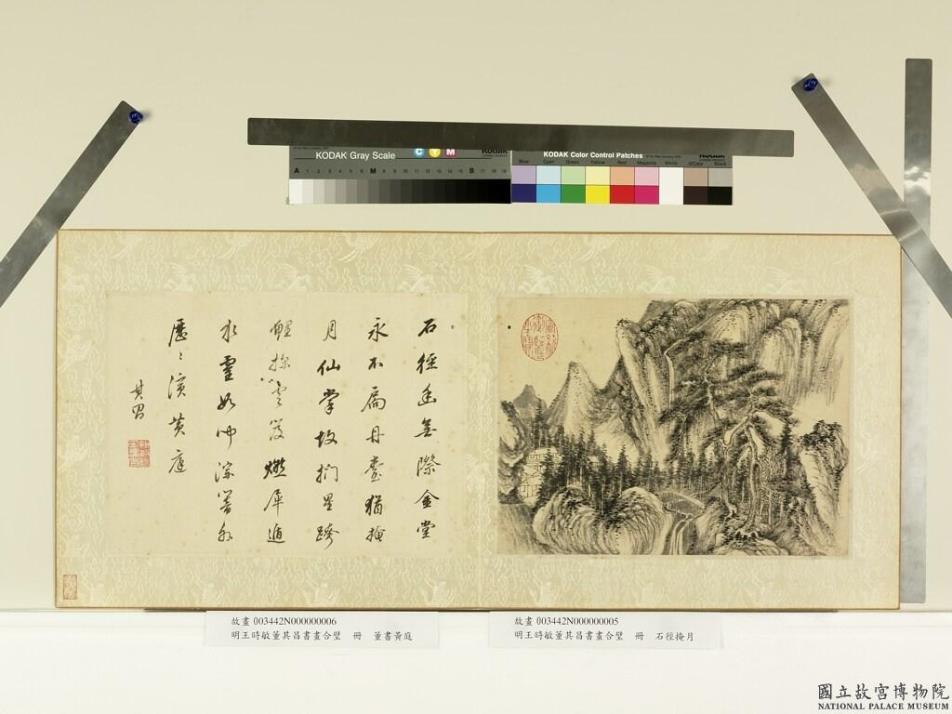 KODAK Gray Scale
C Y M
Kodak
A 1 2 3 4 5 6 M 8 9 10 11 12 13 14 15 B 17 18 19
KODAK Color Control Patches
Blue Cyan Green Yellow Red Magenta White 3/Color Black
石徑幽無際金堂
永不扃丹臺猶掩
月仙掌故捫星跨
鯉探雲笈燃犀遁
水靈如聞深
歷〻演黄庭
其昌
故畫 003442N000000006
明王時敏董其昌書畫合璧 冊 董書黃庭
故畫 003442N000000005
明王時敏董其昌書畫合璧 冊 石徑掩月
國立故宮博物院
NATIONAL PALACE MUSEUM